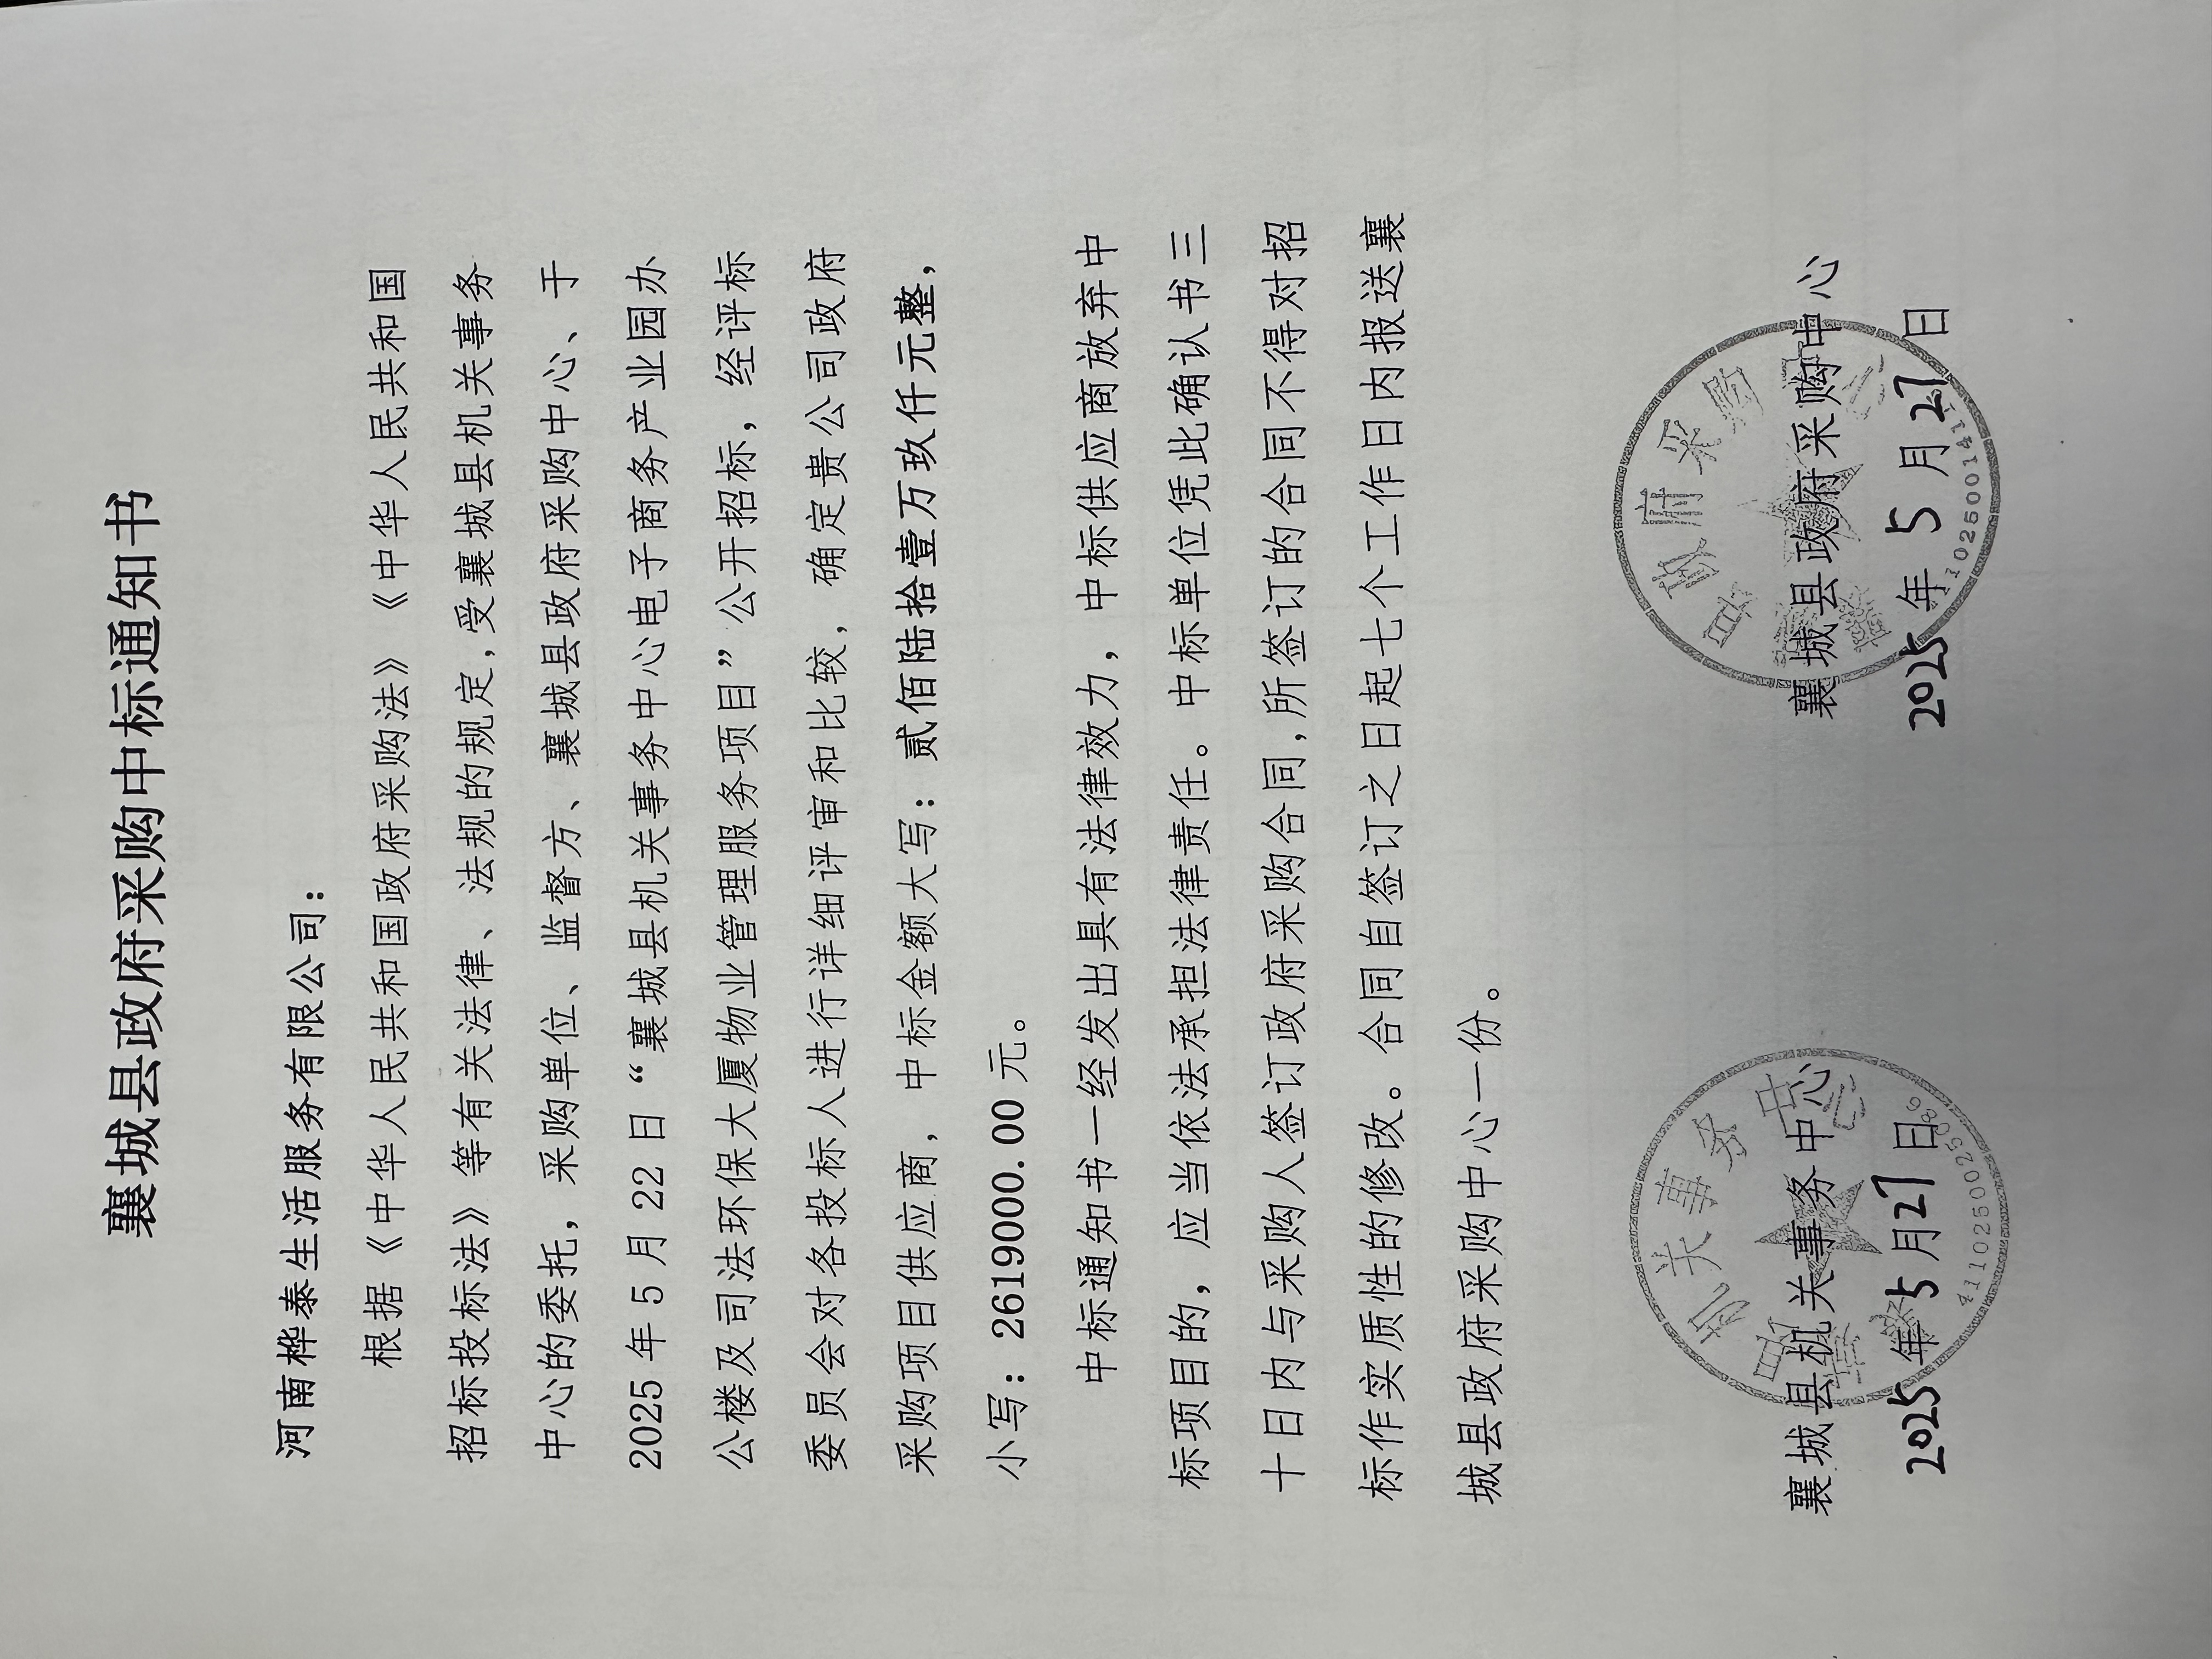 襄城县政府采购中标通知书
河南桦泰生活服务有限公司：
根据《中华人民共和国政府采购法》《中华人民共和国
招标投标法》等有关法律、法规的规定，受襄城县机关事务
中心的委托，采购单位、监督方、襄城县政府采购中心、于
2025年5月22日“襄城县机关事务中心电子商务产业园办
公楼及司法环保大厦物业管理服务项目”公开招标，经评标
委员会对各投标人进行详细评审和比较，确定贵公司政府
采购项目供应商，中标金额大写：贰佰陆拾壹万玖仟元整，
小写：2619000.00元。
中标通知书一经发出具有法律效力，中标供应商放弃中
标项目的，应当依法承担法律责任。中标单位凭此确认书三
十日内与采购人签订政府采购合同，所签订的合同不得对招
标作实质性的修改。合同自签订之日起七个工作日内报送襄
城县政府采购中心一份。
襄城县机关事务中心 襄城县政府采购中心
2025年5月27日 2025年5月27日
襄城县机关事务中心
41110250025086
襄城县政府采购中心